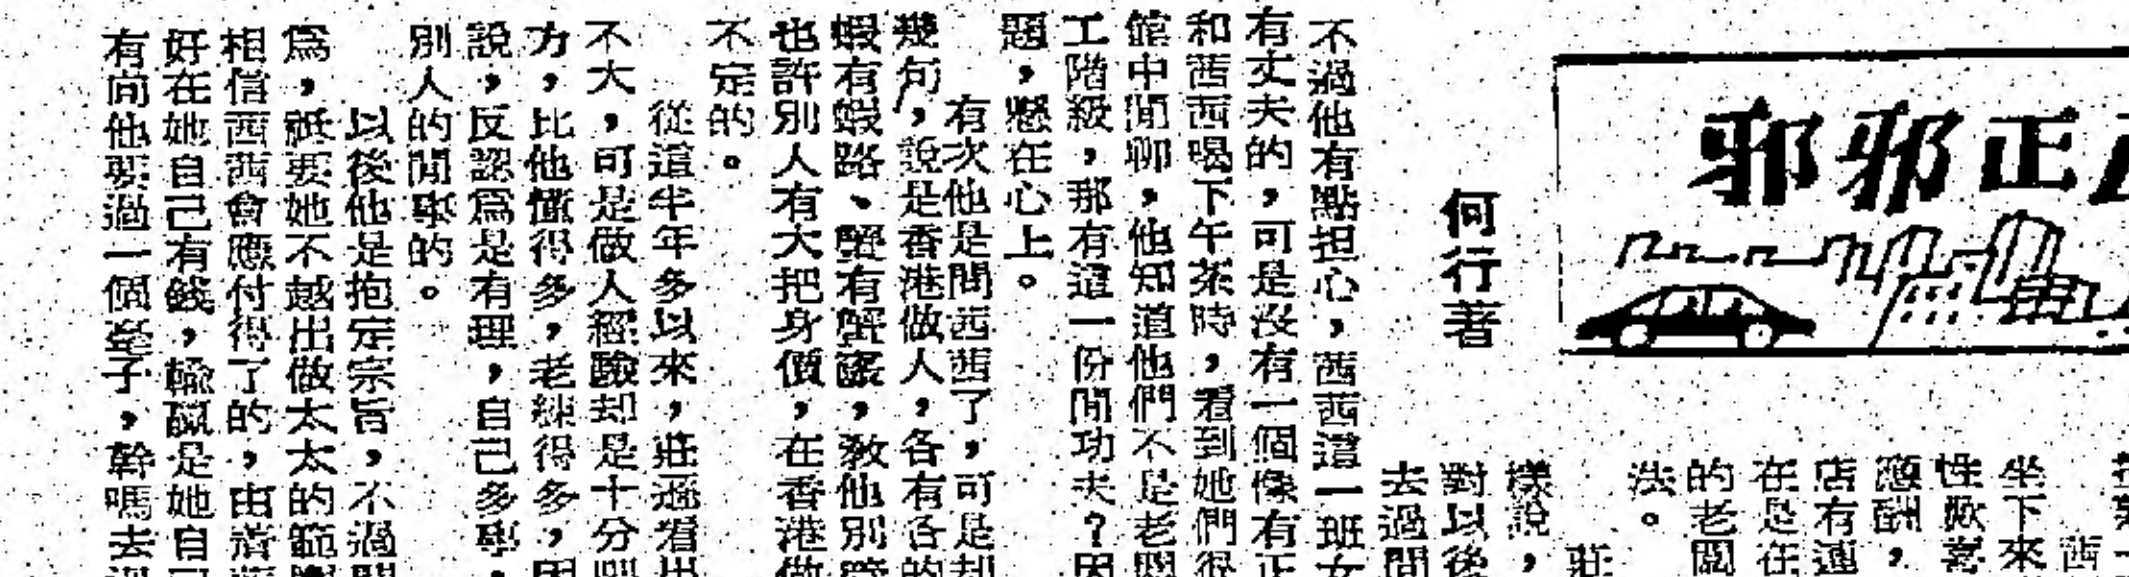 邪邪正
何行著
坐下來
性歡喜
應酬，
店有
在是在
的老闆
法。
樣說，莊
對以後
去過問
不過他有點担心，茜茜這一班女
有丈夫的，可是沒有一個像有正
和茜茜喝下午茶時，看到她們很
館中閒聊，他知道他們不是老闆
工階級，那有這一份閒功夫？因
題，懸在心上。
有次他是問茜茜了，可是却
幾句，說是香港做人，各有各的
蝦有蝦路、蟹有蟹
也許別人有大把身價，在香港做
不定的。
從這半年多以來，莊
不大，可是做人經驗却是十分
方，比他懂得多，老練得多，因
說，反認爲是有理，自己多事，
別人的閒事的。
以後他是抱定宗旨，不過問
爲，祇要她不越出做太太的範
相信茜茜會應付得了的，由
好在她自己有錢，輸贏是她自己
有向他要過一個仙子，幹嗎去